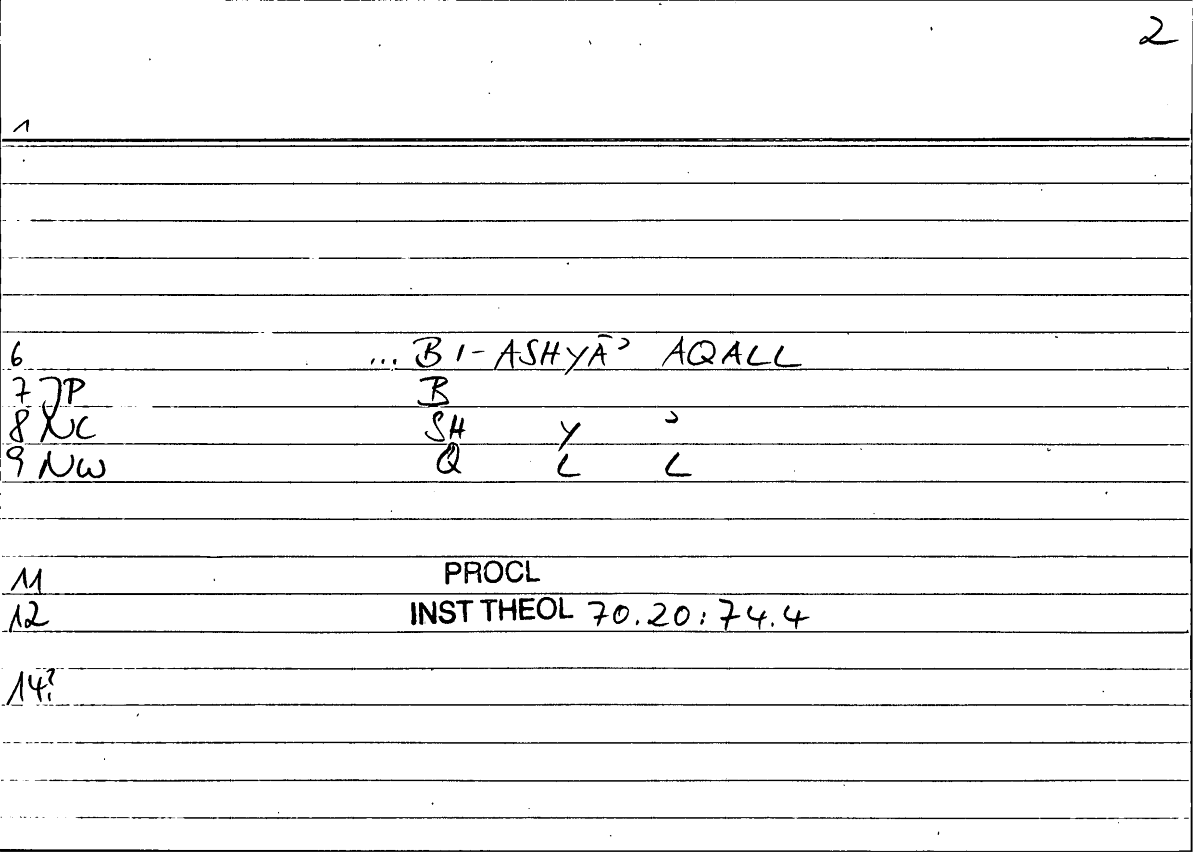 2
1
6 ... BI-ASHYĀʾ AQALL
7 JP B
8 NC SH Y ʾ
9 NW Q L L
11 PROCL
12 INST THEOL 70.20:74.4
14?